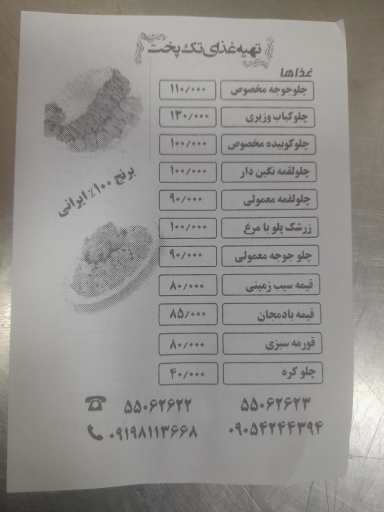 تهیه غذای تک پخت
غذاها
چلوجوجه مخصوص ۱۱۰/۰۰۰
چلوکباب وزیری ۱۳۰/۰۰۰
چلوکوبیده مخصوص ۱۰۰/۰۰۰
چلولقمه نگین دار ۱۰۰/۰۰۰
چلولقمه معمولی ۹۰/۰۰۰
زرشک پلو با مرغ ۱۰۰/۰۰۰
چلو جوجه معمولی ۹۰/۰۰۰
قیمه سیب زمینی ۸۰/۰۰۰
قیمه بادمجان ۸۵/۰۰۰
قورمه سبزی ۸۰/۰۰۰
چلو کره ۴۰/۰۰۰
برنج ۱۰۰٪ ایرانی
۵۵۰۶۲۶۲۳ ۵۵۰۶۲۶۲۲
۰۹۰۵۴۲۴۴۳۹۴ ۰۹۱۹۸۱۱۳۶۶۸